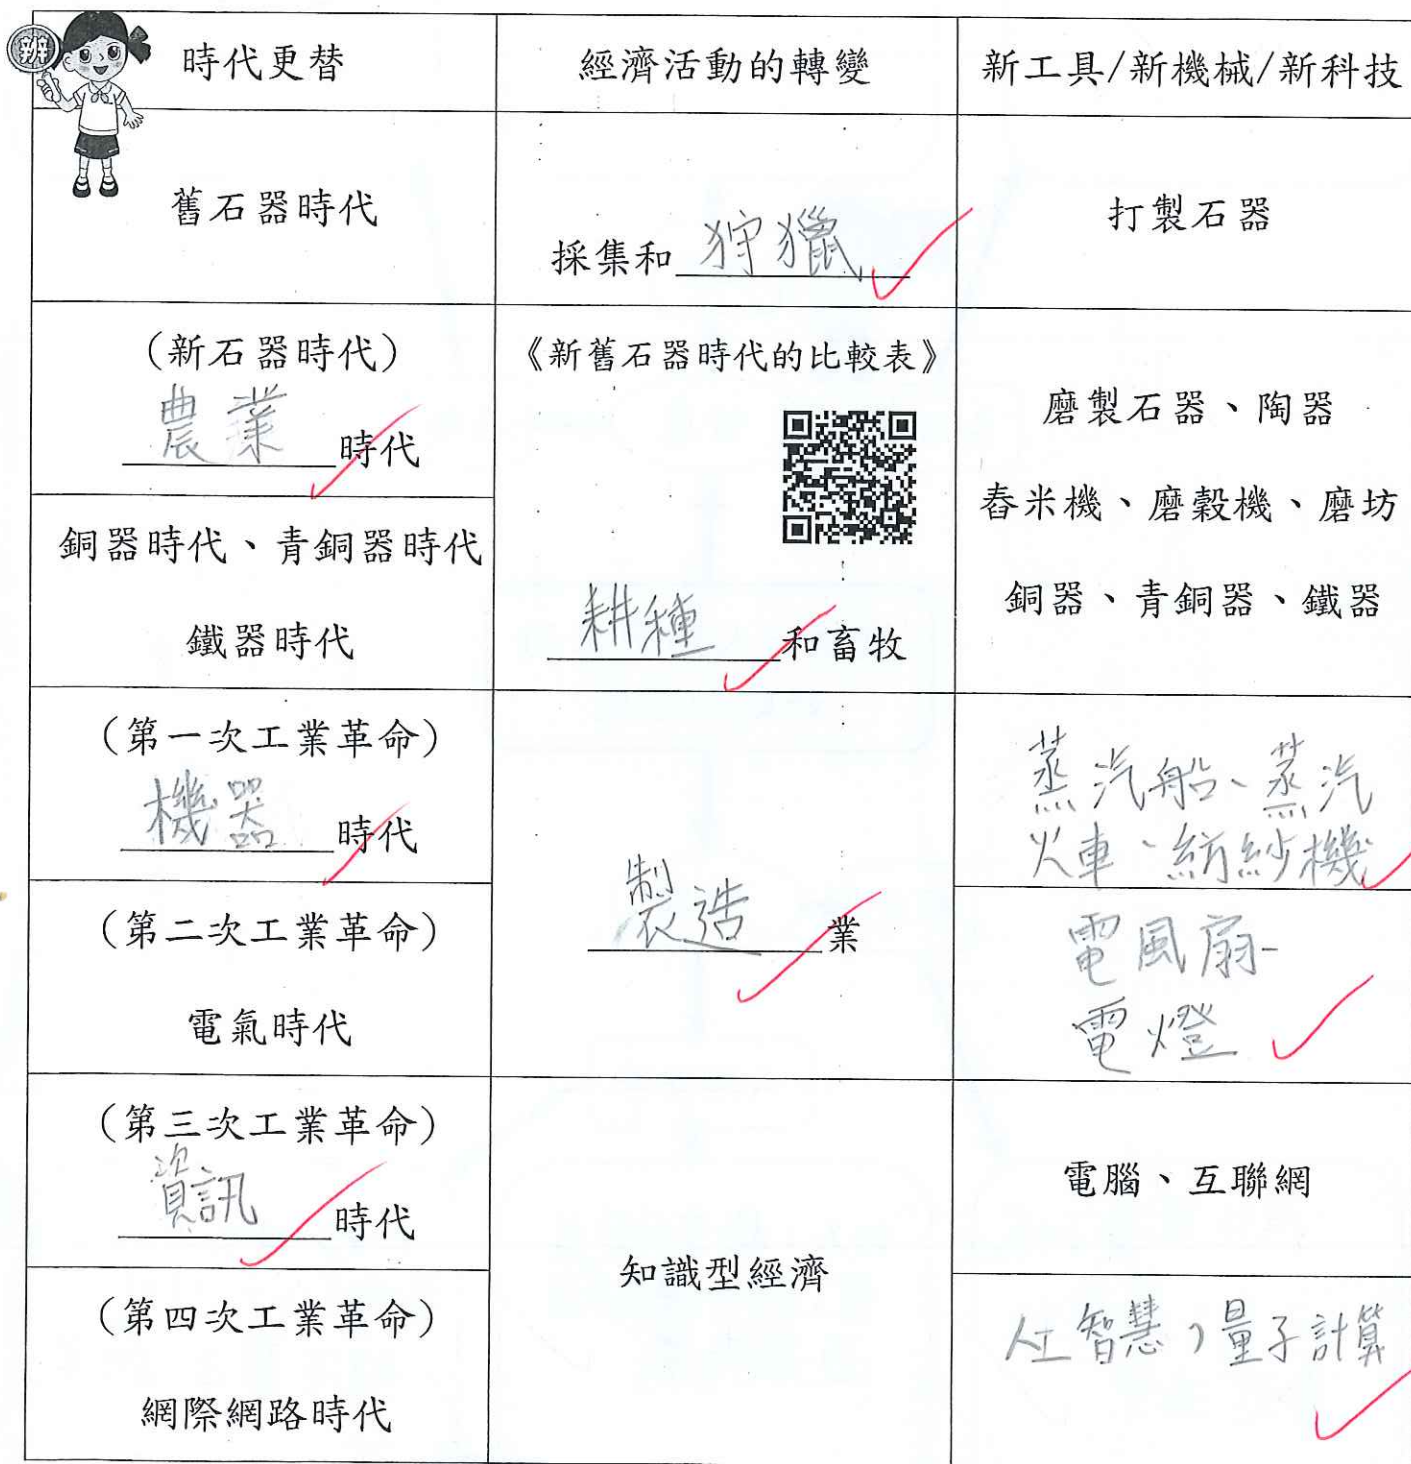 辨
時代更替
經濟活動的轉變
新工具/新機械/新科技
舊石器時代
採集和狩獵
打製石器
(新石器時代)
農業時代
《新舊石器時代的比較表》
磨製石器、陶器
舂米機、磨穀機、磨坊
銅器、青銅器、鐵器
銅器時代、青銅器時代
鐵器時代
耕種和畜牧
(第一次工業革命)
機器時代
製造業
蒸汽船、蒸汽
火車、紡紗機
(第二次工業革命)
電氣時代
電風扇
電燈
(第三次工業革命)
資訊時代
知識型經濟
電腦、互聯網
(第四次工業革命)
網際網路時代
人工智慧,量子計算